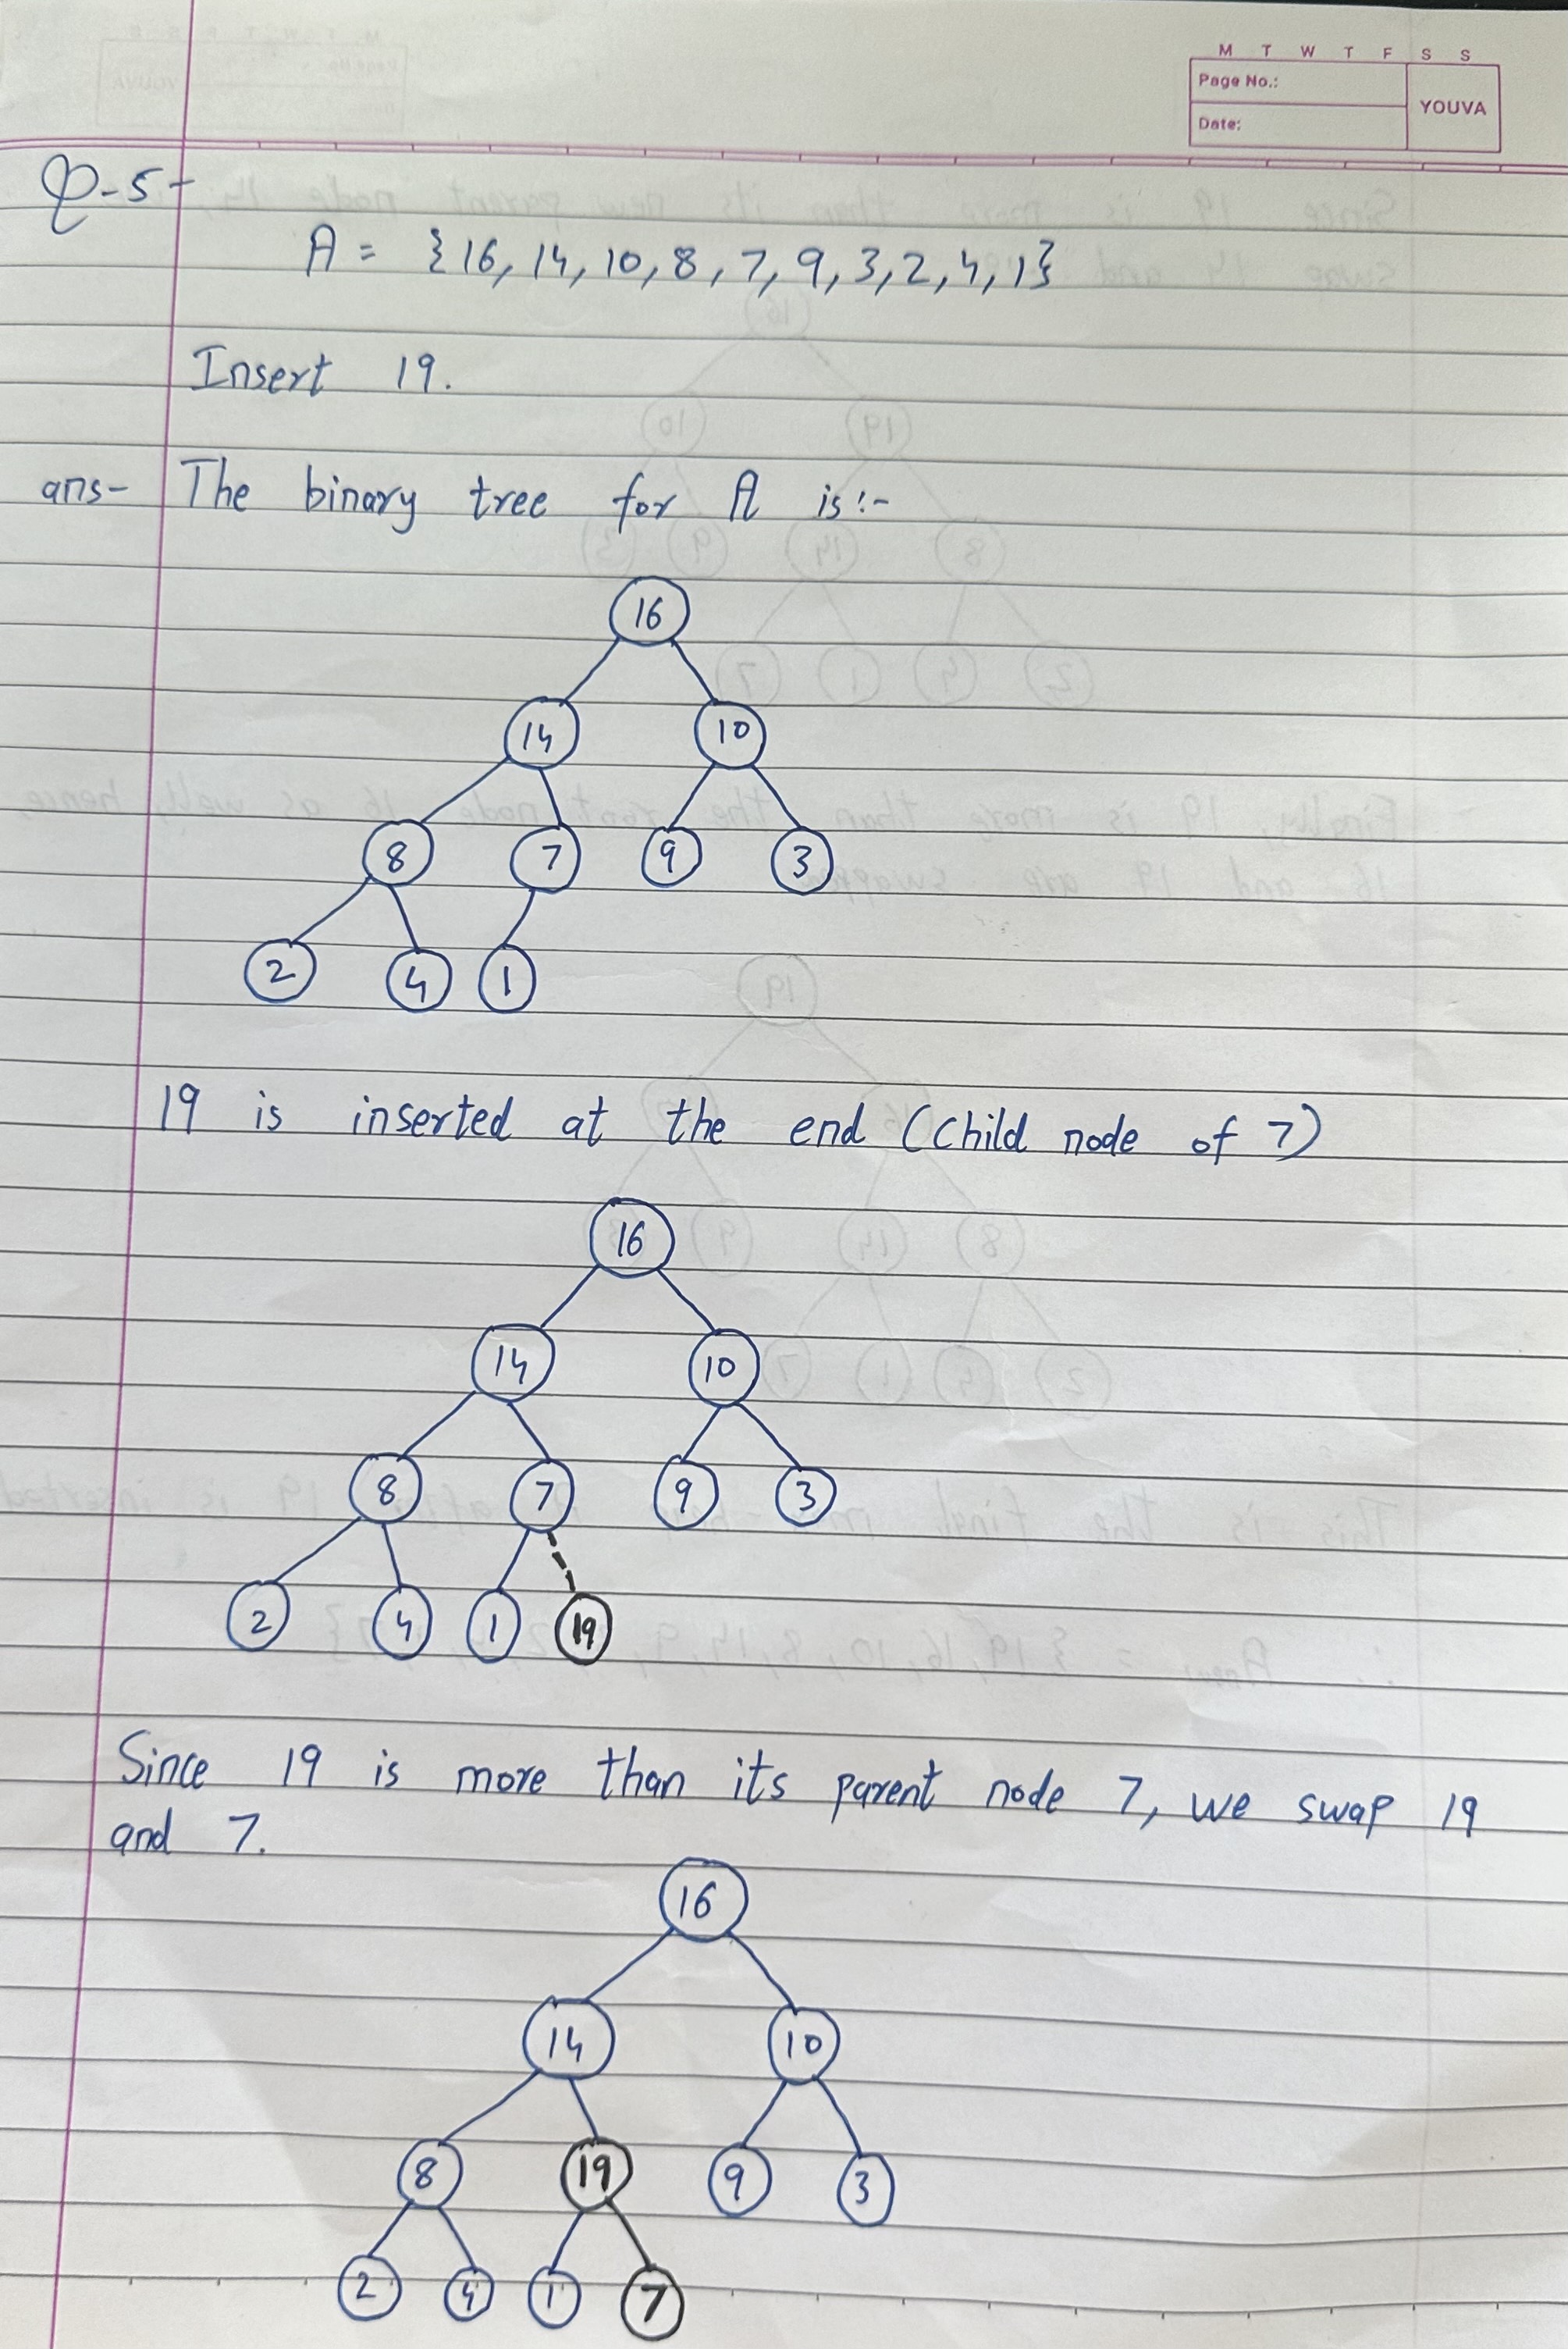 M T W T F S S
Page No.:
YOUVA
Date:
Q-5-
A = {16, 14, 10, 8, 7, 9, 3, 2, 4, 1}
Insert 19.
ans- The binary tree for A is:-
16
14 10
8 7 9 3
2 4 1
19 is inserted at the end (Child node of 7)
16
14 10
8 7 9 3
2 4 1 19
Since 19 is more than its parent node 7, we swap 19
and 7.
16
14 10
8 19 9 3
2 4 1 7